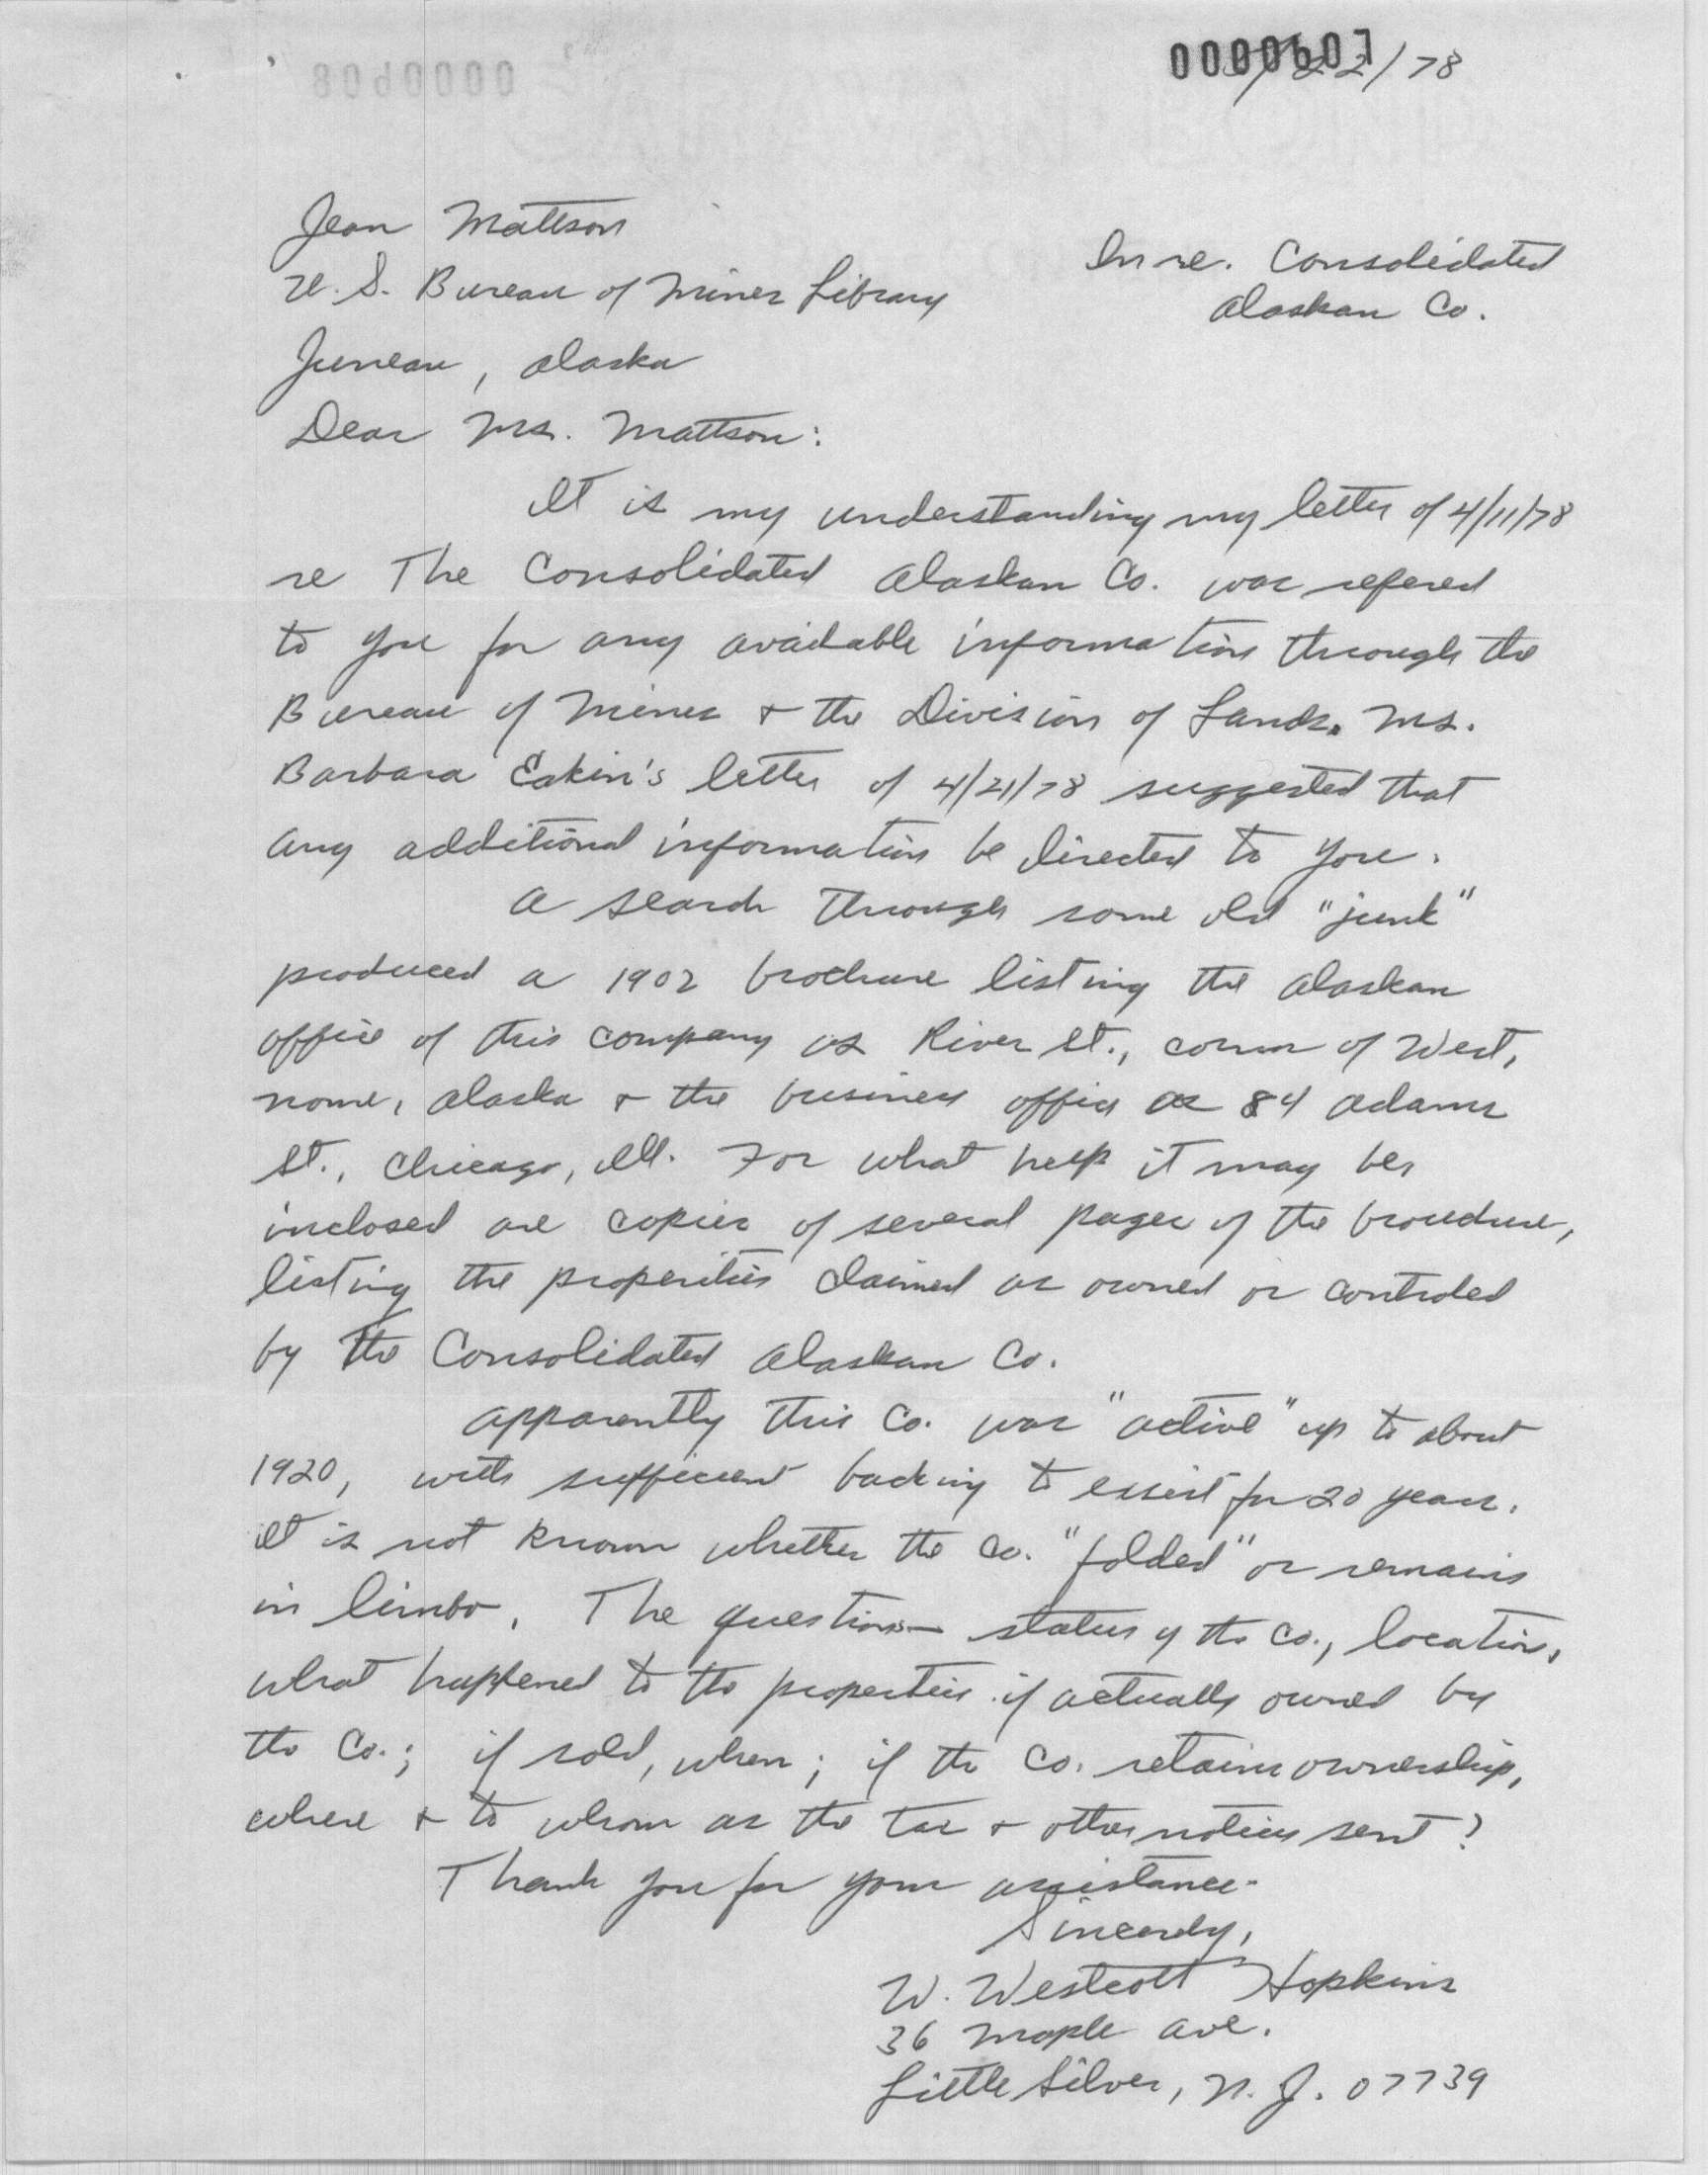 0000607
/78
0000608
Jean Mattson
U. S. Bureau of Mines Library
In re. Consolidated
Alaskan Co.
Juneau, Alaska
Dear Ms. Mattson:
It is my understanding my letter of 4/11/78
re The Consolidated Alaskan Co. was refered
to you for any available information through the
Bureau of Mines & the Division of Lands. Ms.
Barbara Eakin's letter of 4/21/78 suggested that
any additional information be directed to you.
A search through some old "junk"
produced a 1902 brochure listing the Alaskan
office of this company as River St., corner of West,
Nome, Alaska & the business office as 84 Adams
St., Chicago, Ill. For what help it may be,
inclosed are copies of several pages of the brochure,
listing the properities claimed as owned or controled
by the Consolidated Alaskan Co.
Apparently this Co. was "active" up to about
1920, with sufficient backing to exsist for 20 years.
It is not known whether the Co. "folded" or remains
in limbo. The question - status of the Co., location,
what happened to the properties if actually owned by
the Co.; if sold, when; if the Co. retains ownership,
where & to whom as the tax & other notices sent?
Thank you for your assistance.
Sincerely,
W. Westcott Hopkins
36 Maple Ave.
Little Silver, N. J. 07739